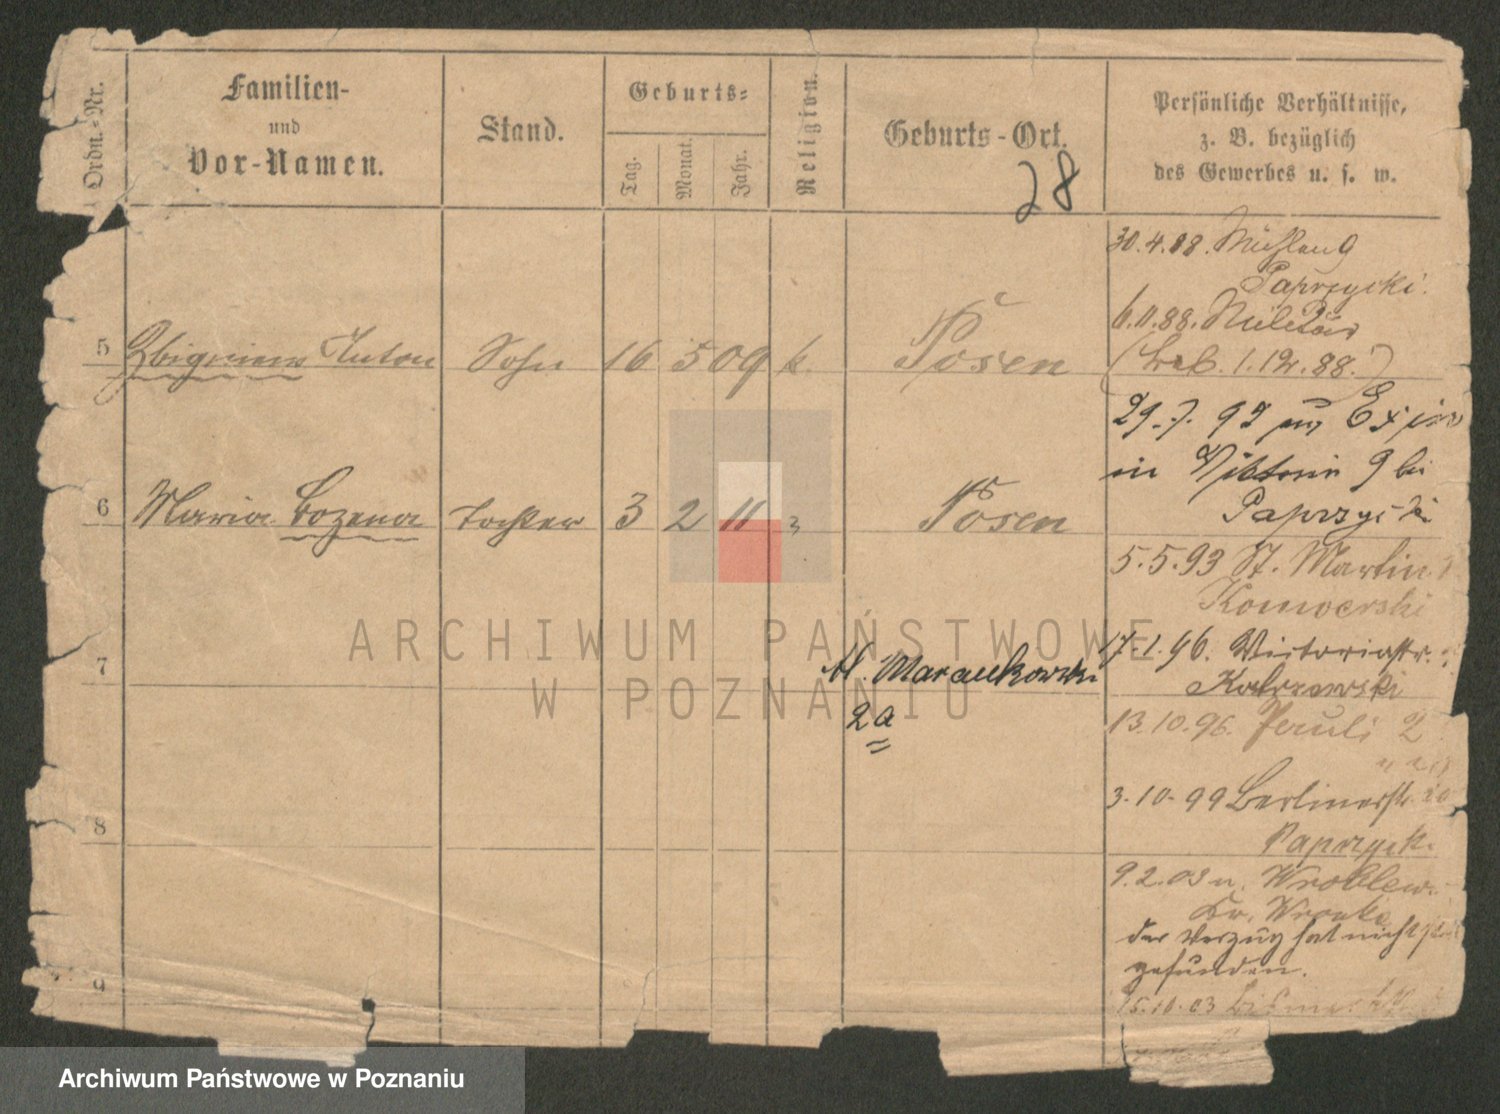 Ordn.-Nr.
Familien-
und
Vor-Namen.
Stand.
Geburts-
Tag.
Monat.
Jahr.
Religion.
Geburts-Ort.
28
Persönliche Verhältnisse,
z. B. bezüglich
des Gewerbes u. s. w.
30.4.88. Mühlen 9
Paprzycki.
6.11.88. Militär
5 Zbigniew Anton Sohn 16 5 09 k. Posen
( 1.12.88.)
29.7.92
in Viktoria 9 bei
Paprzycki
6 Maria Bozena Tochter 3 2 11 Posen
5.5.93 St. Martin
Komorski
ARCHIWUM PAŃSTWOWE
W POZNANIU
17.1.96. Victoriastr.
7
2a
13.10.96. 2
3.10.99 Berlinerstr.
8
Paprzycki
9.2.03 n. Wroblew.
Kr. Wronke
der Verzug hat nicht
gefunden.
9
15.10.03
Archiwum Państwowe w Poznaniu